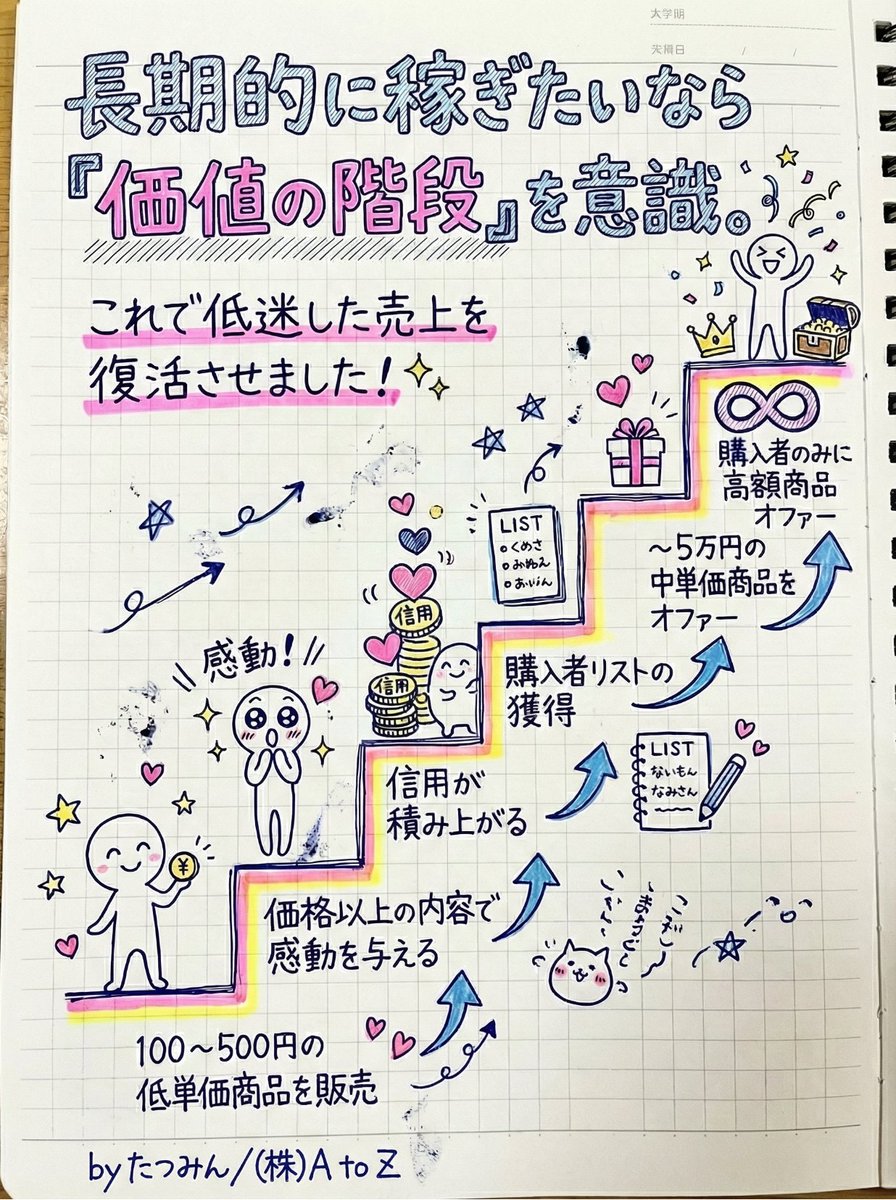 長期的に稼ぎたいなら
『価値の階段』を意識。
これで低迷した売上を
復活させました！
購入者のみに
高額商品
オファー
～5万円の
中単価商品を
オファー
LIST
くめさ
信用
信用
感動！
購入者リストの
獲得
LIST
ないもん
なみさん
信用が
積み上がる
¥
価格以上の内容で
感動を与える
100～500円の
低単価商品を販売
byたつみん/(株)A to Z